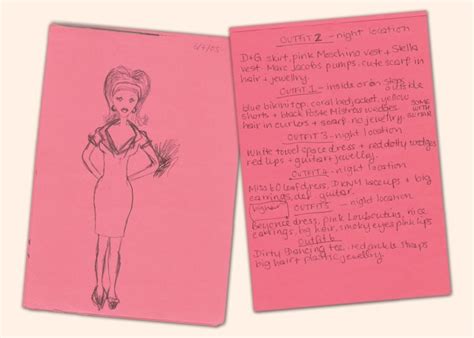 6/4/05
OUTFIT 2 - night location
D+G skirt, pink Moschino vest + Stella
vest. Marc Jacobs pumps. cute scarf in
hair + jewellery.
OUTFIT 1 - inside or on steps
outside
blue bikini top, coral bedjacket, yellow
shorts + black Postie Mistress wedges
SOME
WITH
GUITAR
hair in curlers + scarf. no jewellery.
OUTFIT 3 - night location
White towel dress + red dotty wedges
red lips + guitar + jewellery.
OUTFIT 4 - night location
dress, DKNY lace ups + big
earrings, guitar.
OUTFIT 5 - night location
Beyonce dress, pink Louboutins, nice
earrings, big hair, smoky eyes pink lips
OUTFIT 6
Dirty Dancing tee. red ankle straps
big hair + plastic jewellery.